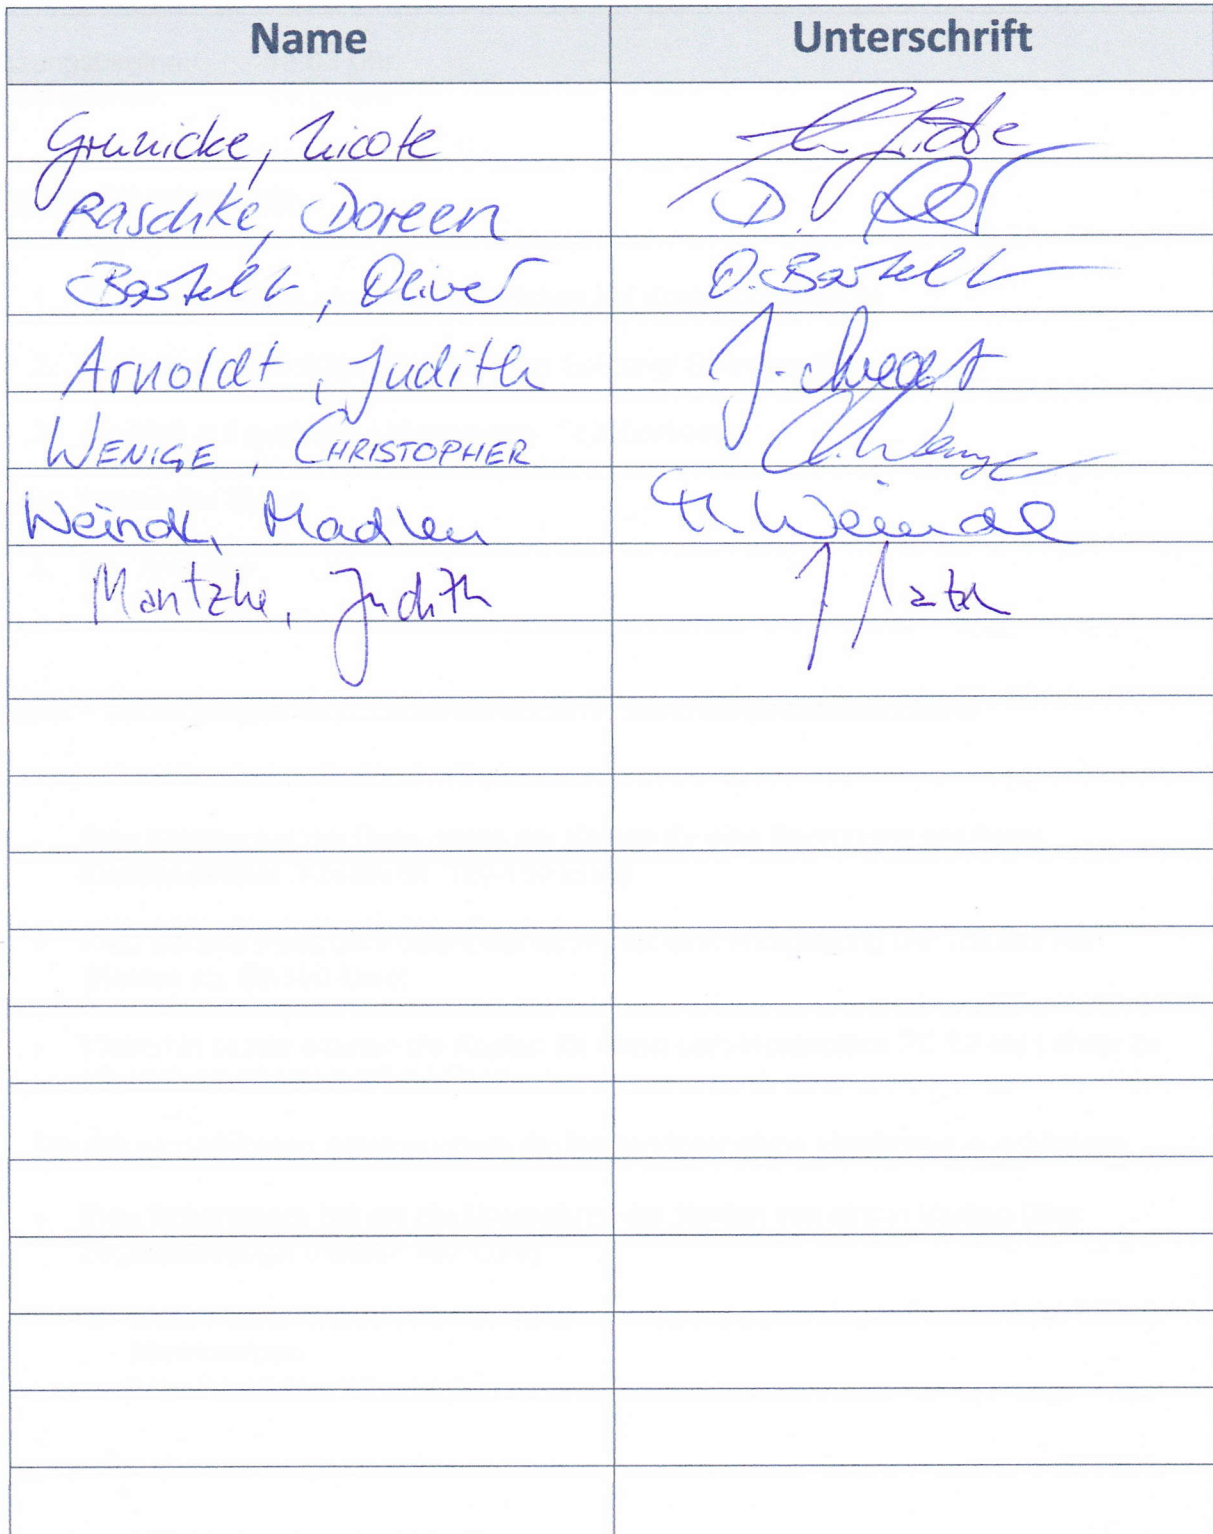 Name Unterschrift
Grunicke, Nicole
Raschke, Doreen D.
Bartelt, Oliver O. Bartelt
Arnoldt, Judith J. Arnoldt
WENIGE, CHRISTOPHER C. Wenige
Weindl, Madlen M. Weindl
Mantzke, Judith J